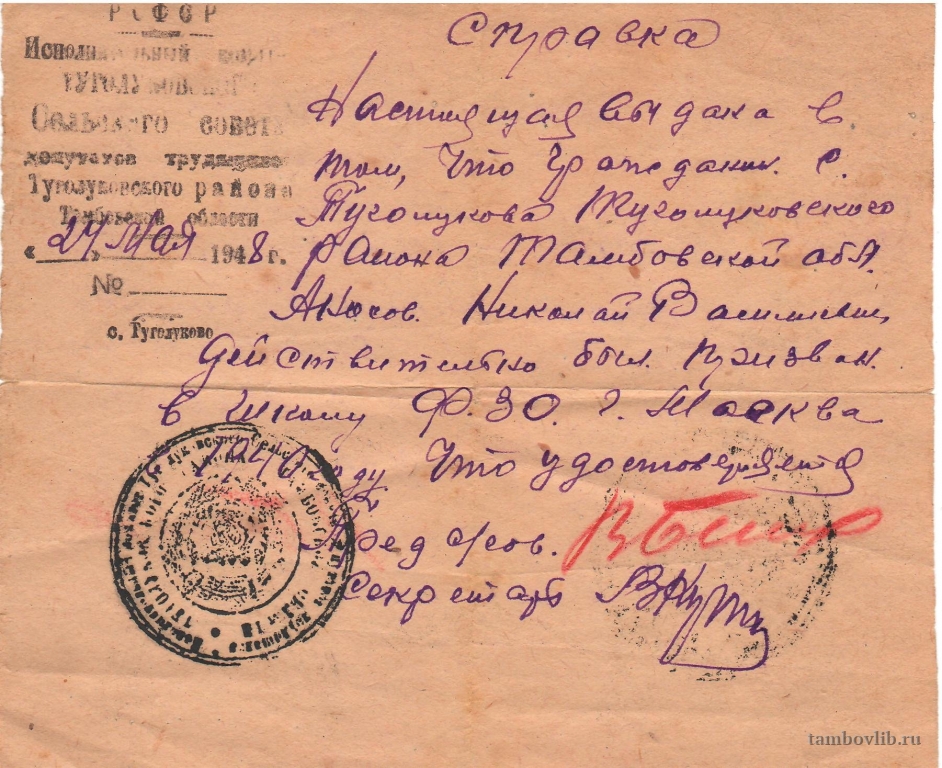 РСФСР
Исполнительный комитет
ТУГОЛУКОВСКОГО
Сельского совета
депутатов трудящихся
Туголуковского района
Тамбовской области
«24» Мая 1948 г.
№
с. Туголуково
Справка
Настоящая выдана в
том, что граждани. с.
Туголукова Туголуковского
района Тамбовской обл.
Аносов. Николай Василиевич
действительно был призван.
в школу Ф.ЗО. г. Москва
1940 году что удостоверяется
Пред с/сов.
Секретарь
tambovlib.ru